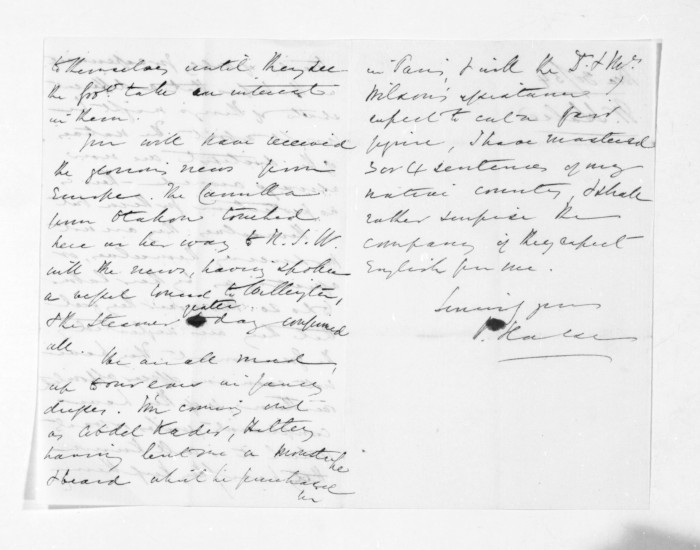 to themselves until they see
the Govt. to take an interest
in them.
You will have received
the glorious news from
Europe. The Camilla
from Otahoo touched
here on her way to N.S.W.
with the news, having spoken
a vessel bound to Wellington,
& the Steamer yester day confirmed
all. We are all mad,
up to our ears in fancy
dresses. I'm coming out
as Abdel Kader,
having lent me a Moustache
& beard which he purchased
in
in Paris, & with the Dr. & Mrs.
Wilson's assistance I
expect to cut a fair
figure, I have mastered
3 or 4 sentences of my
native country, & shall
rather surprise the
company if they expect
English from me.
yours